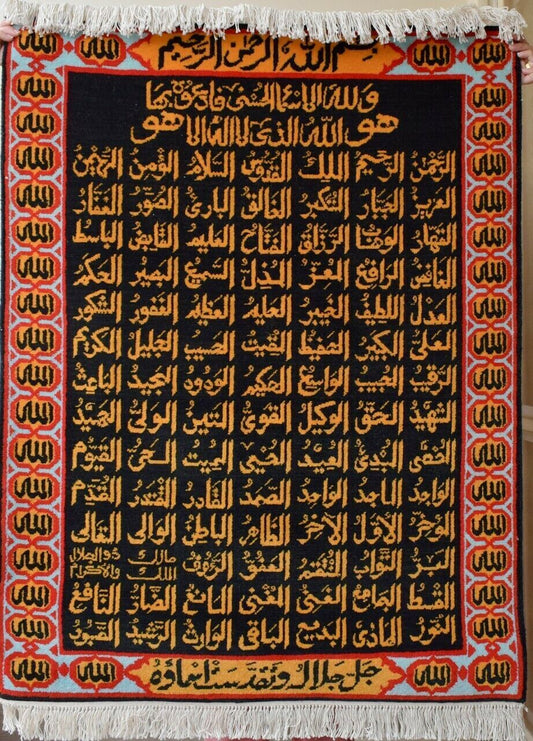 الله الله بسم الله الرحمن الرحيم الله الله
ولله الاسماء الحسنى فادعوه بها
هو الله الذي لا اله الا هو
الله الرحمن الرحيم الملك القدوس السلام المؤمن المهيمن الله
الله العزيز الجبار المتكبر الخالق البارئ المصور الغفار الله
الله القهار الوهاب الرزاق الفتاح العليم القابض الباسط الله
الله الخافض الرافع المعز المذل السميع البصير الحكم الله
الله العدل اللطيف الخبير الحليم العظيم الغفور الشكور الله
الله العلي الكبير الحفيظ المقيت الحسيب الجليل الكريم الله
الله الرقيب المجيب الواسع الحكيم الودود المجيد الباعث الله
الله الشهيد الحق الوكيل القوي المتين الولي الحميد الله
الله المحصي المبدئ المعيد المحيي المميت الحي القيوم الله
الله الواجد الماجد الواحد الصمد القادر المقتدر المقدم الله
الله المؤخر الأول الآخر الظاهر الباطن الوالي المتعالي الله
الله البر التواب المنتقم العفو الرؤوف مالك الملك ذو الجلال والاكرام الله
الله المقسط الجامع الغني المغني المانع الضار النافع الله
الله النور الهادي البديع الباقي الوارث الرشيد الصبور الله
الله الله جل جلاله وتقدست اسماؤه الله الله